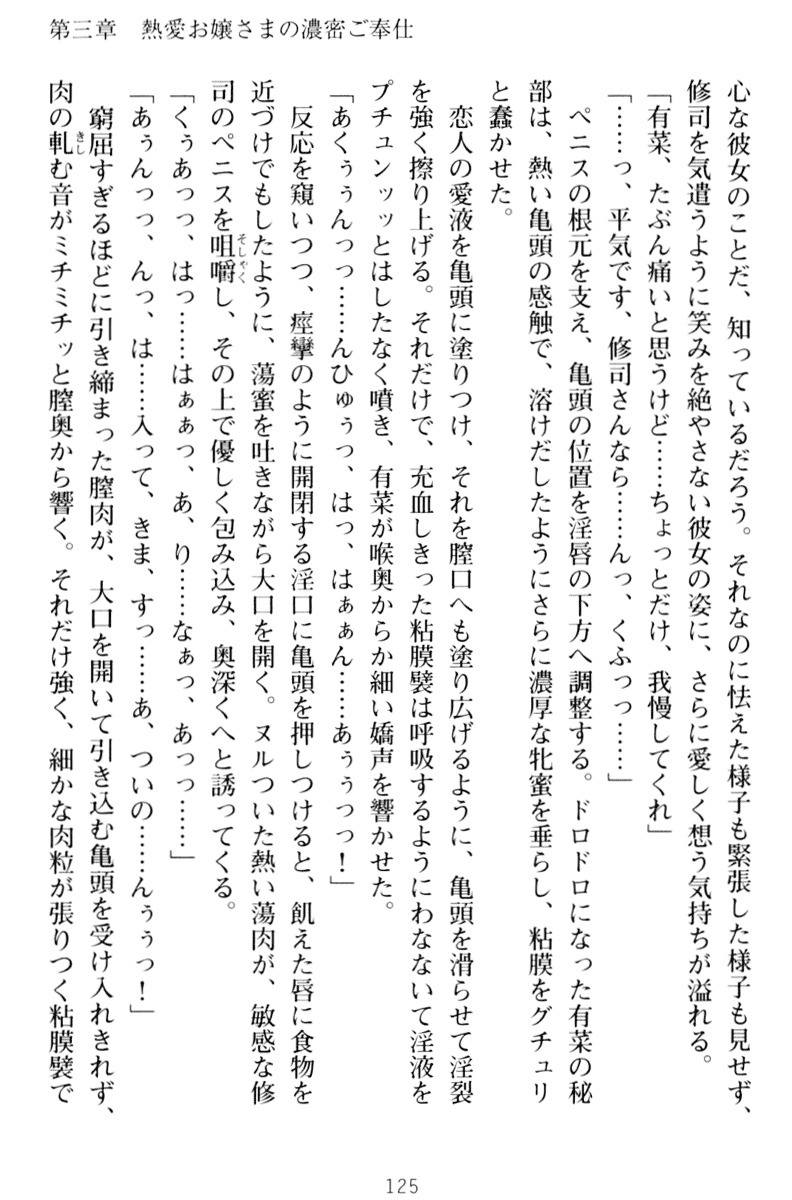 第三章　熱愛お嬢さまの濃密ご奉仕
心な彼女のことだ、知っているだろう。それなのに怯えた様子も緊張した様子も見せず、
修司を気遣うように笑みを絶やさない彼女の姿に、さらに愛しく想う気持ちが溢れる。
「有菜、たぶん痛いと思うけど……ちょっとだけ、我慢してくれ」
「……っ、平気です、修司さんなら……んっ、くふっっ……」
　ペニスの根元を支え、亀頭の位置を淫唇の下方へ調整する。ドロドロになった有菜の秘
部は、熱い亀頭の感触で、溶けだしたようにさらに濃厚な牝蜜を垂らし、粘膜をグチュリ
と蠢かせた。
　恋人の愛液を亀頭に塗りつけ、それを膣口へも塗り広げるように、亀頭を滑らせて淫裂
を強く擦り上げる。それだけで、充血しきった粘膜襞は呼吸するようにわなないて淫液を
プチュンッッとはしたなく噴き、有菜が喉奥からか細い嬌声を響かせた。
「あくぅぅんっっ……んひゅぅっ、はっ、はぁぁん……あぅぅっっ！」
　反応を窺いつつ、痙攣のように開閉する淫口に亀頭を押しつけると、飢えた唇に食物を
近づけでもしたように、蕩蜜を吐きながら大口を開く。ヌルついた熱い蕩肉が、敏感な修
司のペニスを咀嚼し、その上で優しく包み込み、奥深くへと誘ってくる。
そしゃく
「くぅあっっ、はっ……はぁぁっ、あ、り……なぁっ、あっっ……」
「あぅんっっ、んっ、は……入って、きま、すっ……あ、ついの……んぅぅっ！」
　窮屈すぎるほどに引き締まった膣肉が、大口を開いて引き込む亀頭を受け入れきれず、
肉の軋む音がミチミチッと膣奥から響く。それだけ強く、細かな肉粒が張りつく粘膜襞で
きし
125